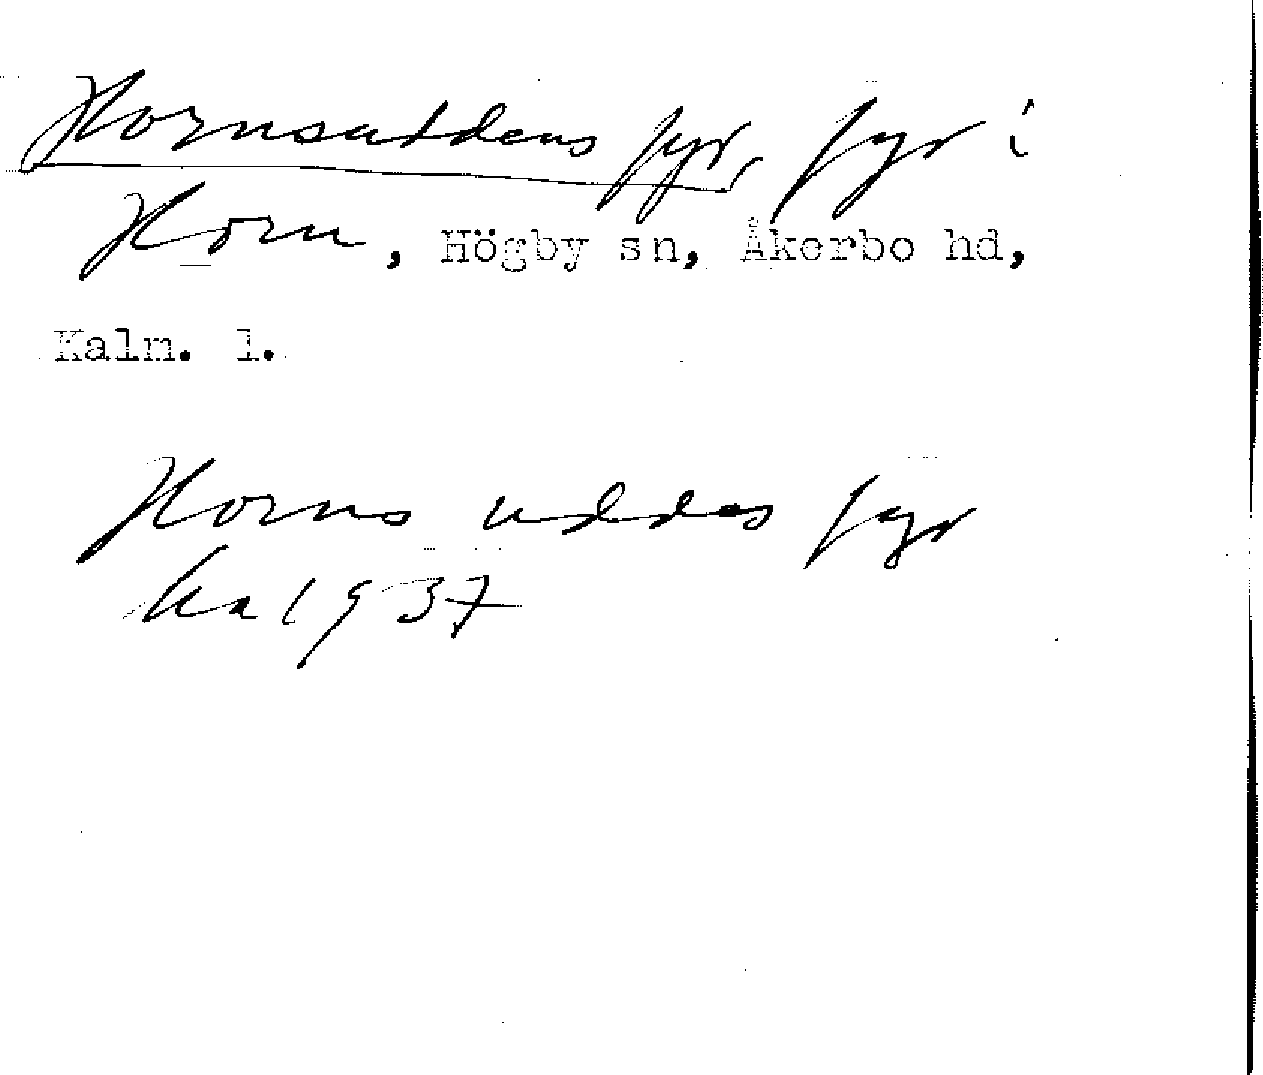 Hornsuddens fyr, fyr i
Horn, Högby sn, Åkerbo hd,
Kalm. l.
Horns uddes fyr
ka 1937